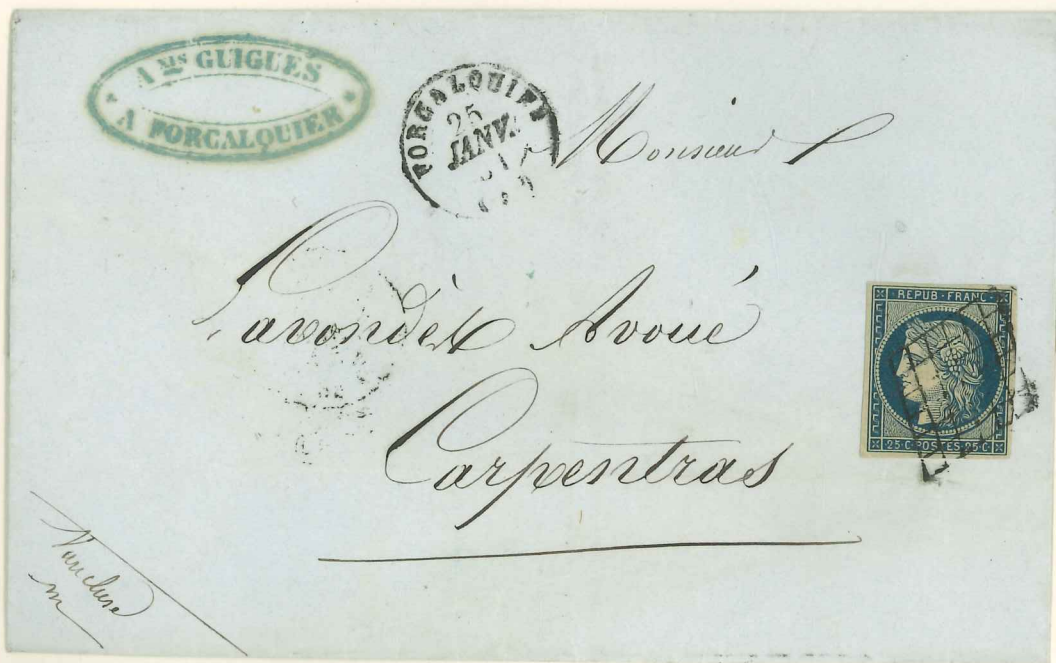 A MIS GUIGUES
A FORCALQUIER
FORCALQUIER
25
JANV.
51
Monsieur
Lavondès Avoué
Carpentras
REPUB·FRANC
25 C·POSTES·25 C
Vaucluse